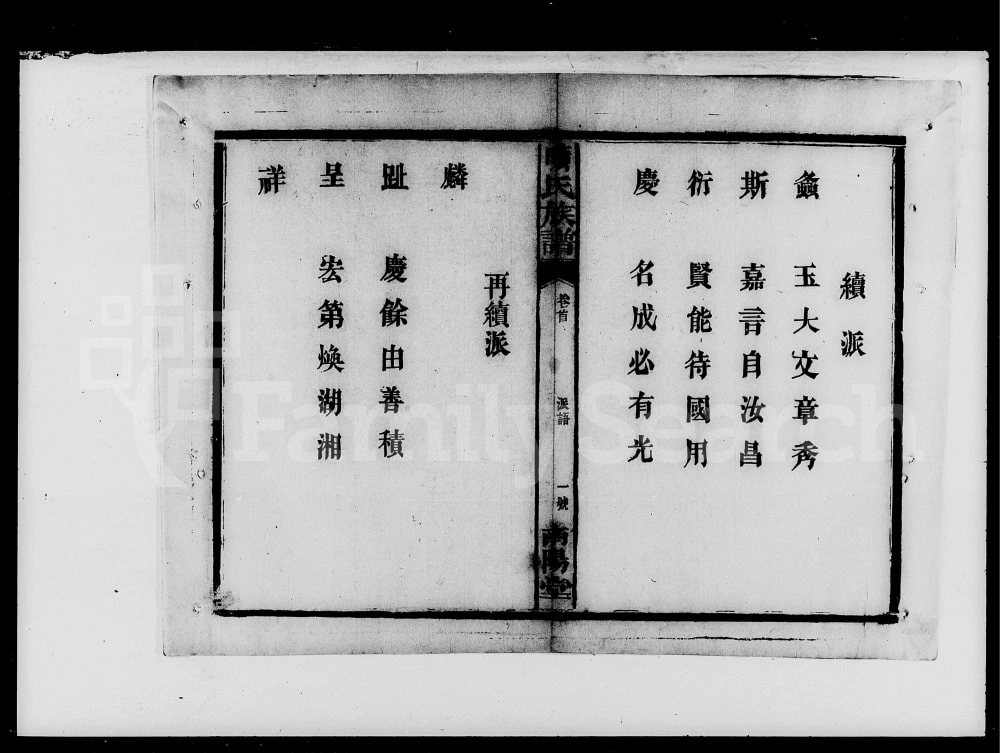 續派
螽 玉大文章秀
斯 嘉言自汝昌
衍 賢能待國用
慶 名成必有光
氏族譜 卷首 派語 一號 南陽堂
再續派
麟
趾 慶餘由善積
呈 宏第煥湖湘
祥
FamilySearch